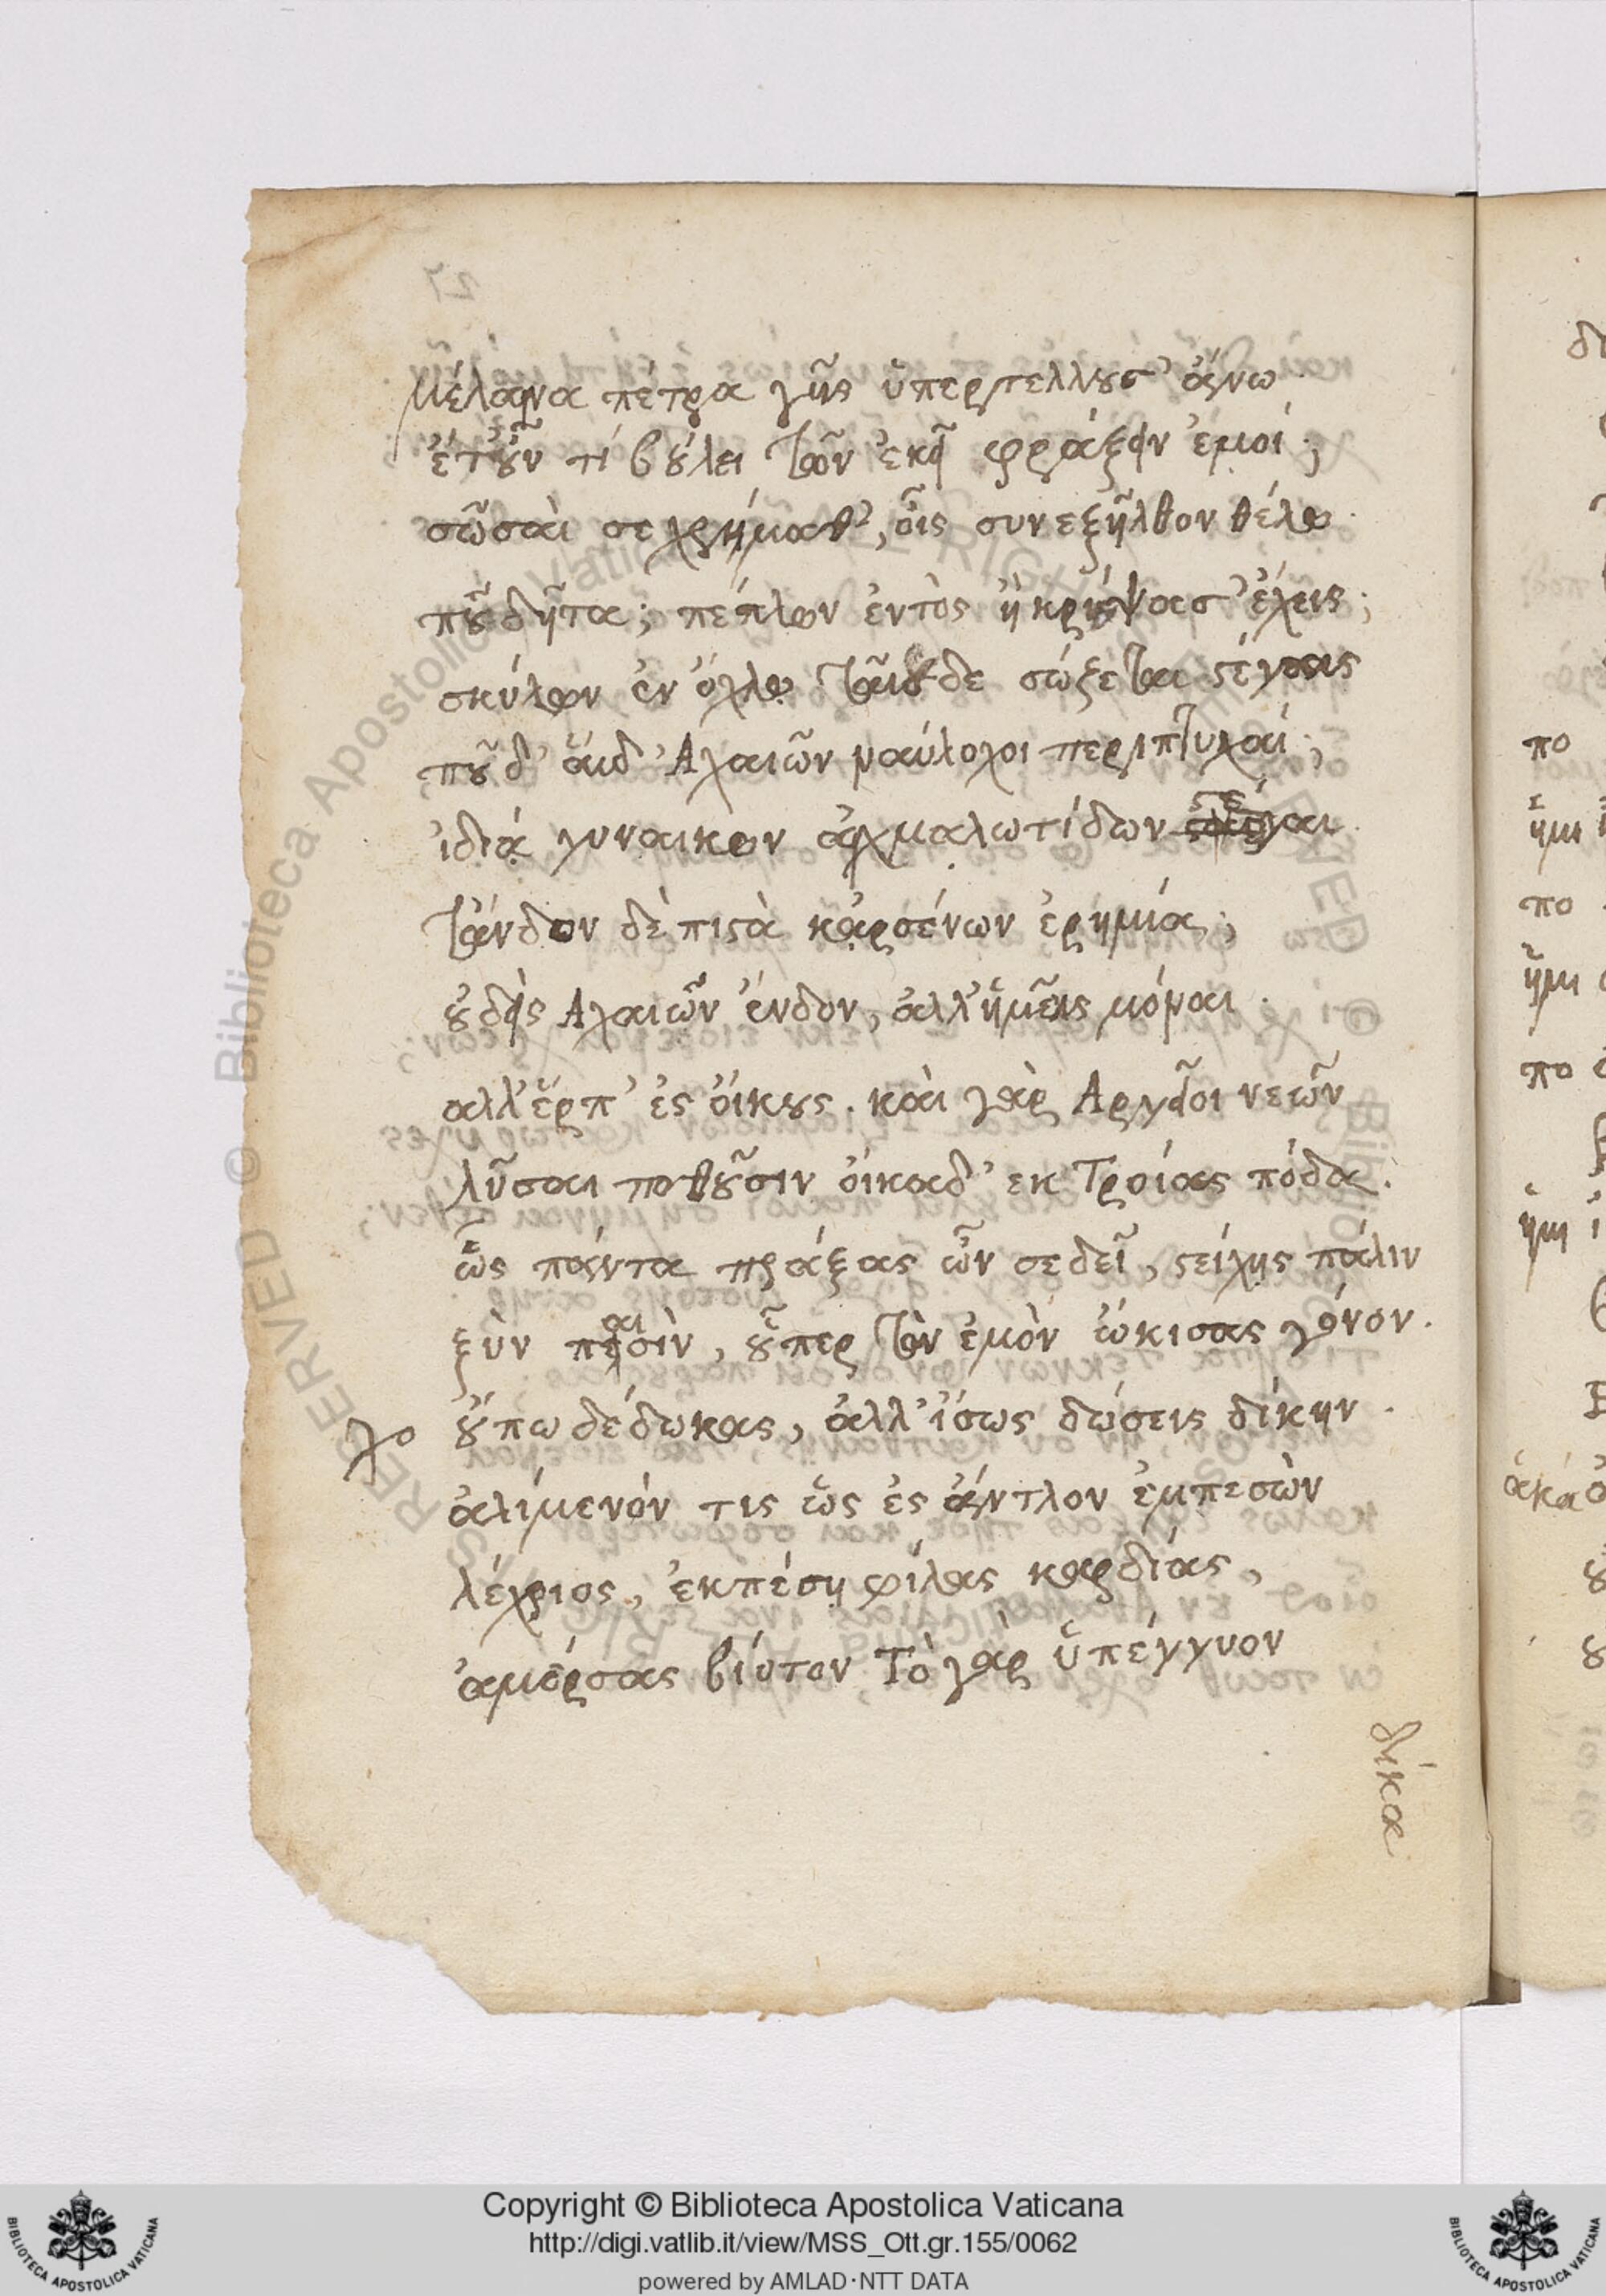 μέλαινα πέτρα γῆς ὑπερτέλλουσ' ἄνω.
ἔτ' οὖν τί βούλει τῶν ἐκεῖ φράζειν ἐμοί;
σῶσαί σε χρήμαθ', οἷς συνεξῆλθον θέλω.
ποῦ δῆτα; πέπλων ἐντὸς ἢ κρύψασ' ἔχεις;
σκύλων ἐν ὄχλῳ ταῖσδε σώζεται στέγαις
ποῦ δ' αἵδ' Ἀχαιῶν ναύλοχοι περιπτυχαί;
ἰδίᾳ γυναικῶν αἰχμαλωτίδων στέγαι
τἄνδον δὲ πιστὰ κἀρσένων ἐρημία;
οὐδεὶς Ἀχαιῶν ἔνδον, ἀλλ' ἡμεῖς μόναι.
αλλ' ἕρπ' ἐς οἴκους. καὶ γὰρ Ἀργεῖοι νεῶν
λῦσαι ποθοῦσιν οἴκαδ' ἐκ Τροίας πόδα.
ὡς πάντα πράξας ὧν σε δεῖ, στείχῃς πάλιν
ξὺν παισὶν, οὗπερ τὸν ἐμὸν ᾤκισας γόνον.
χο οὔπω δέδωκας, ἀλλ' ἴσως δώσεις δίκην.
ἀλίμενόν τις ὡς ἐς ἄντλον ἐμπεσὼν
λέχριος, ἐκπέσῃ φίλας καρδίας,
ἀμέρσας βίοτον Τὸ γὰρ ὑπέγγυον
δίκα
27
πο
ημι
πο
ημι
πο
ημι
Copyright © Biblioteca Apostolica Vaticana
http://digi.vatlib.it/view/MSS_Ott.gr.155/0062
powered by AMLAD·NTT DATA